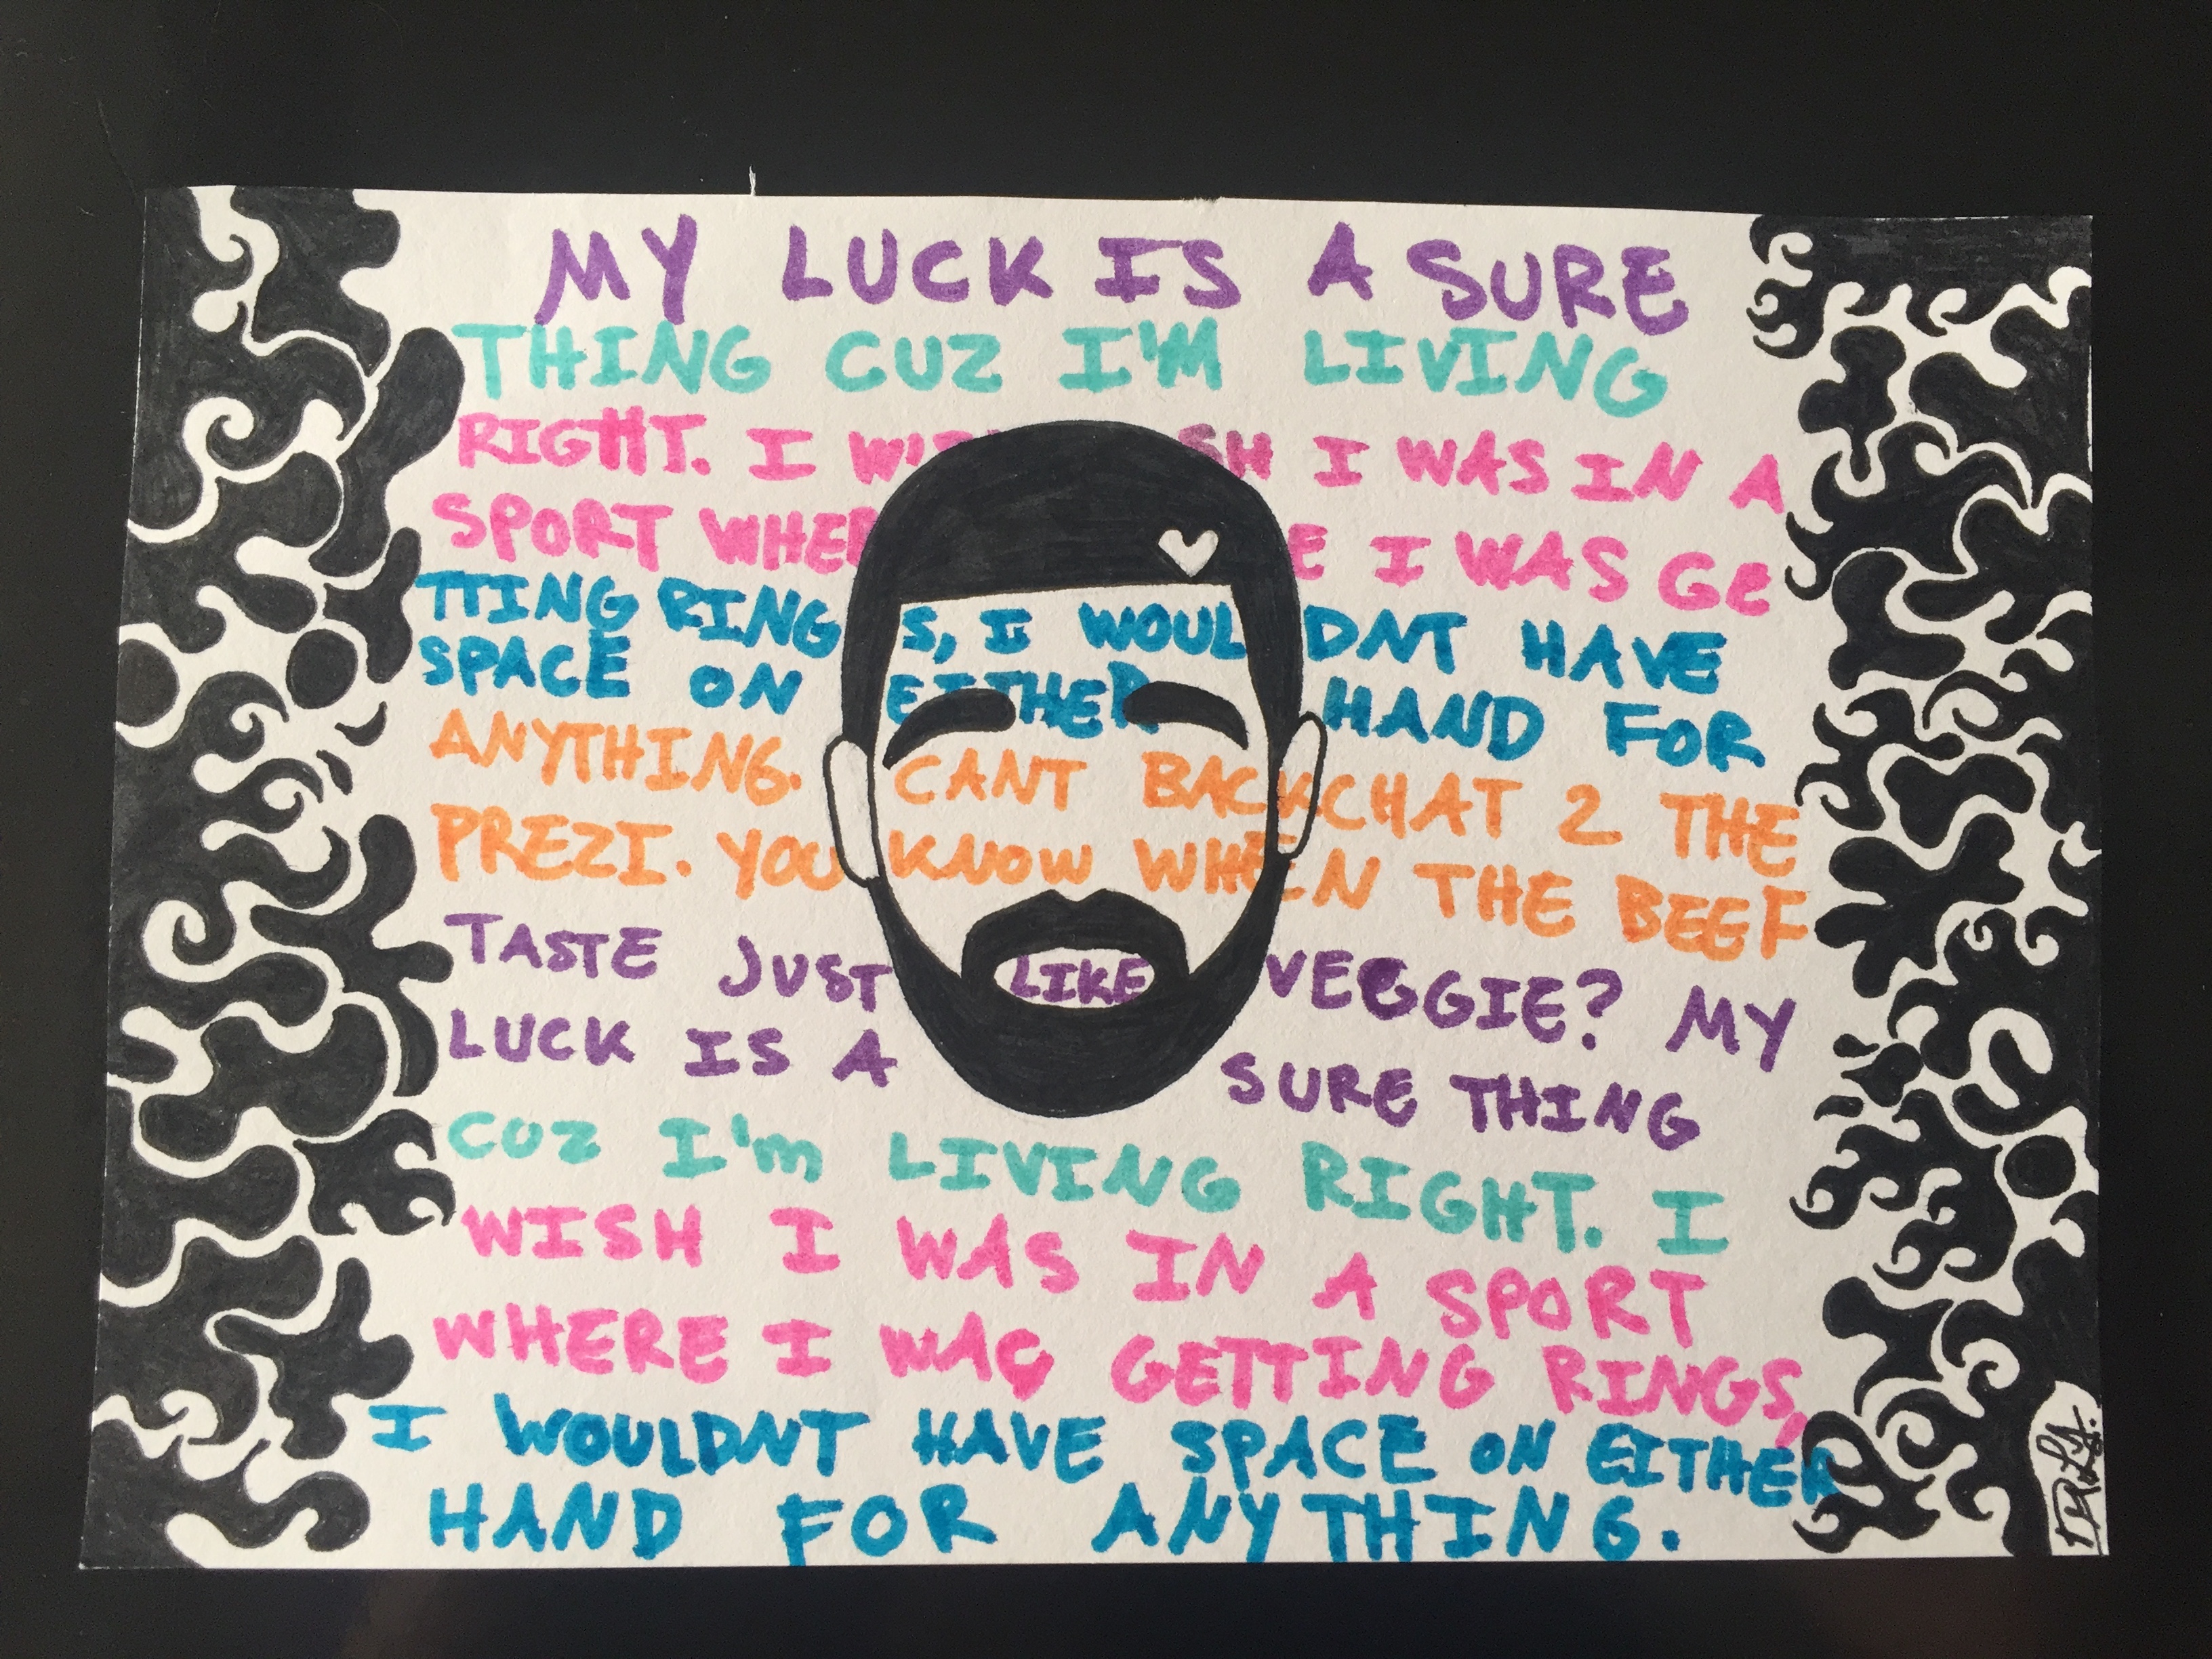 MY LUCK IS A SURE
THING CUZ I'M LIVING
RIGHT. I WI SH I WAS IN A
SPORT WHER E I WAS GE
TTING RING S, I WOUL DNT HAVE
SPACE ON EITHER HAND FOR
ANYTHING. CANT BACKCHAT 2 THE
PREZI. YOU KNOW WHEN THE BEEF
TASTE JUST LIKE VEGGIE? MY
LUCK IS A SURE THING
CUZ I'm LIVING RIGHT. I
WISH I WAS IN A SPORT
WHERE I WAS GETTING RINGS,
I WOULDNT HAVE SPACE ON EITHER
HAND FOR ANYTHING.